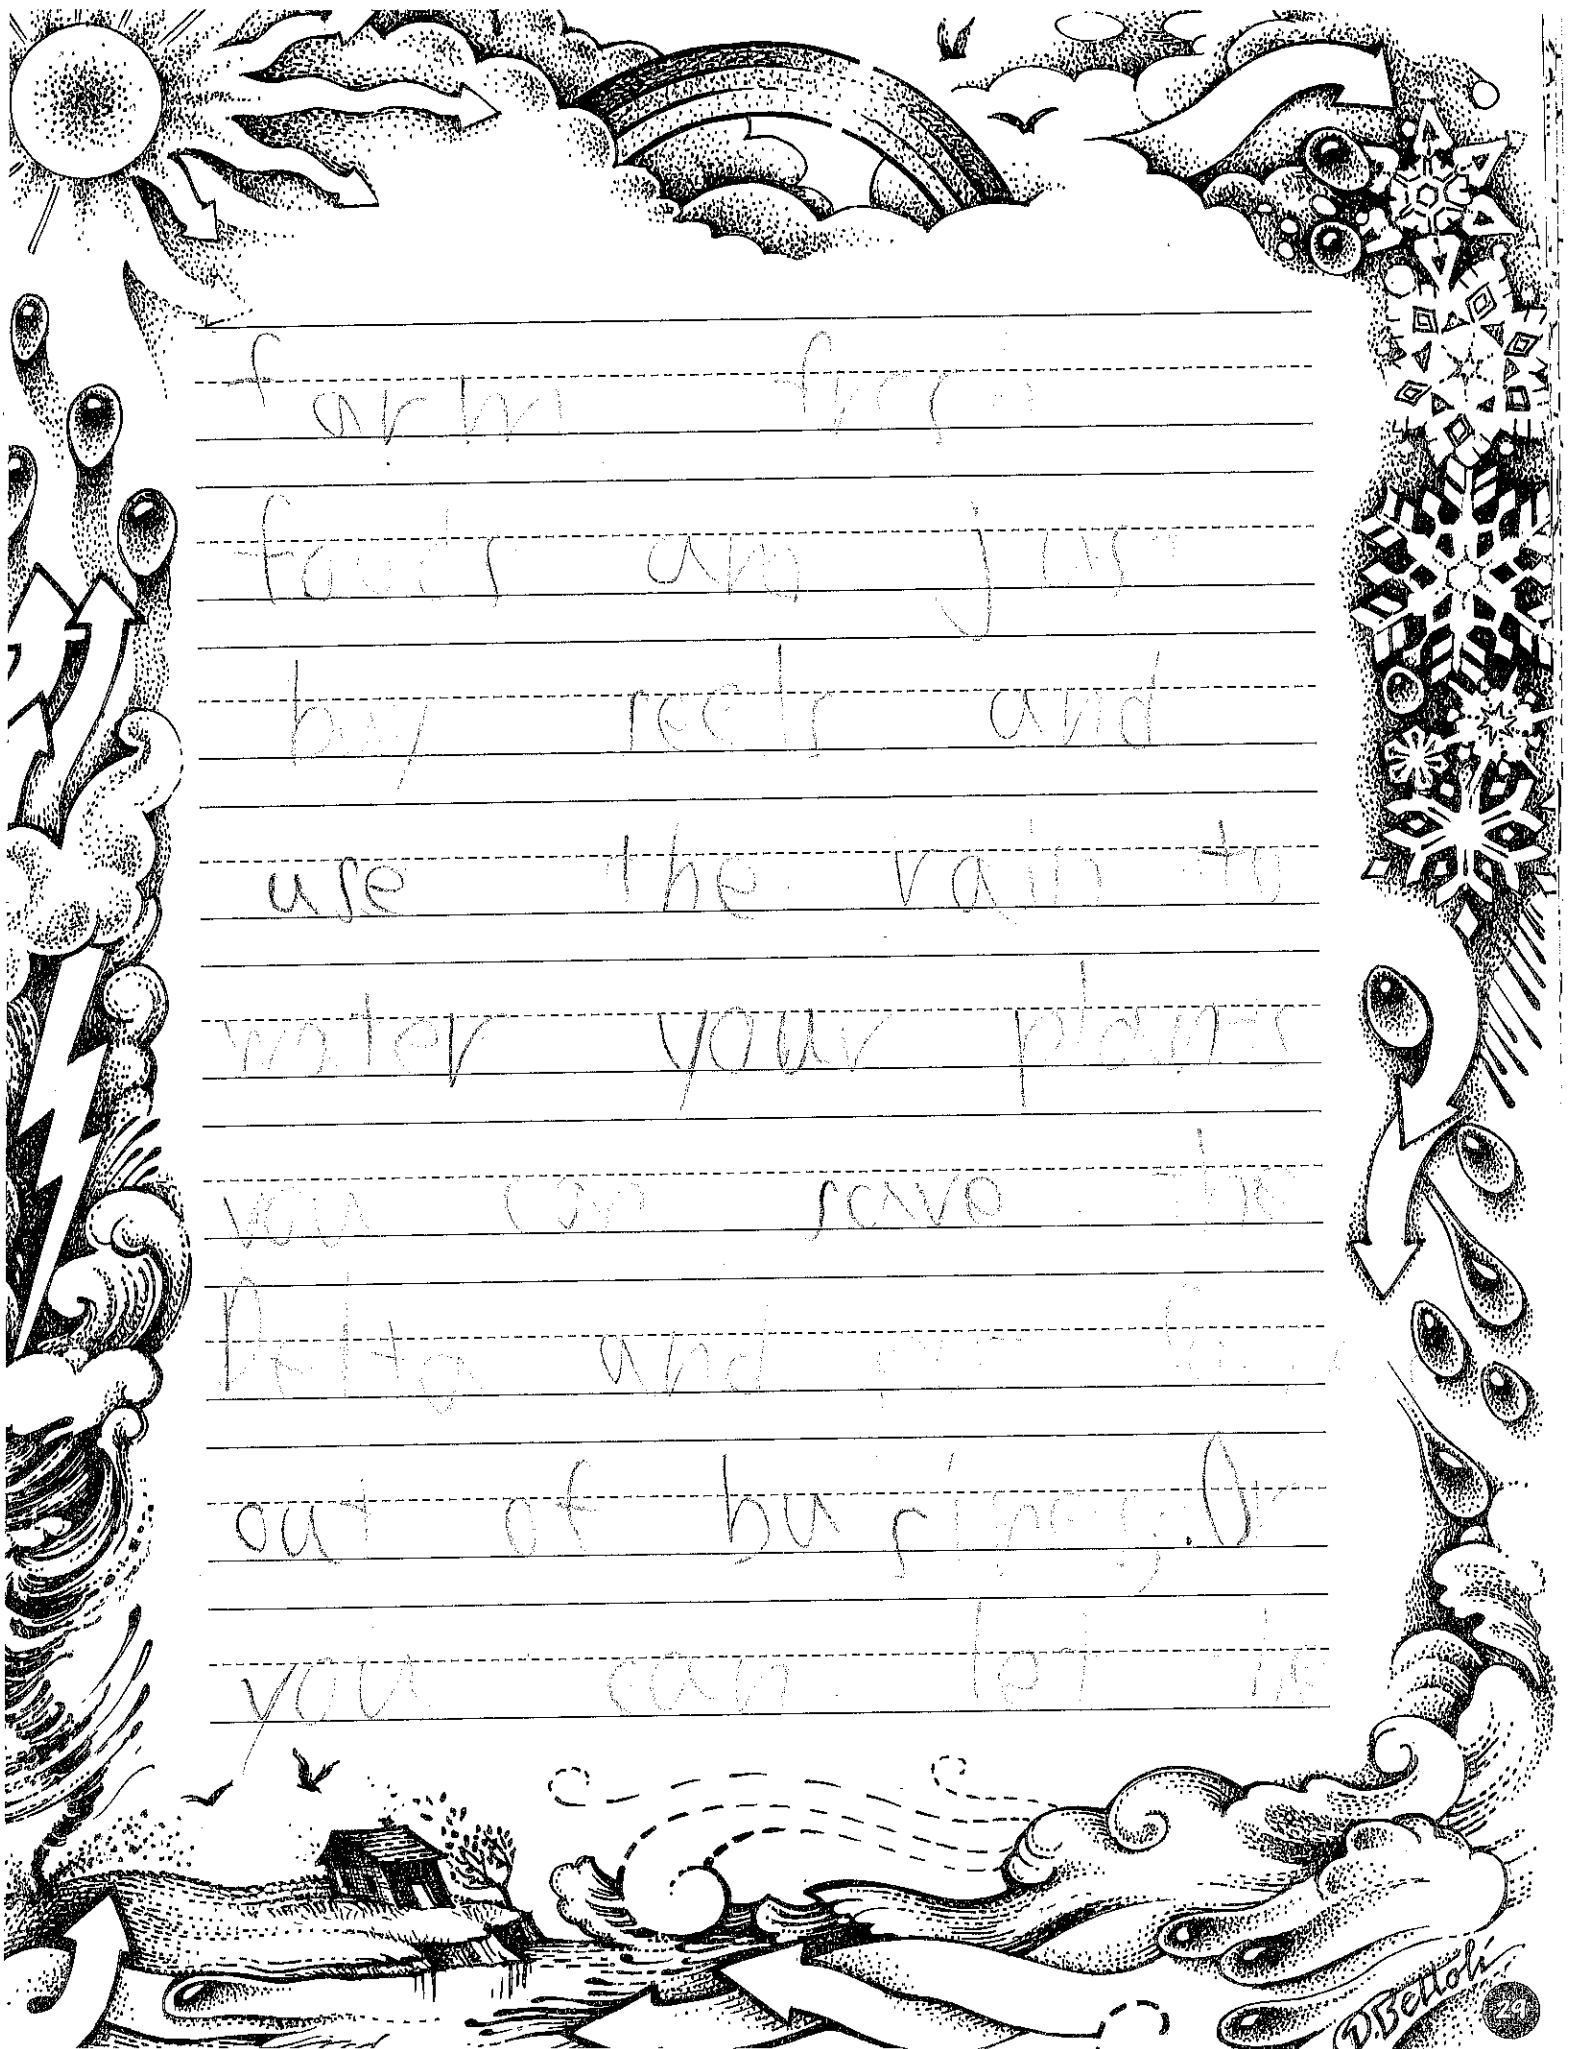 farm fresh
foods am just
buy seeds and
use the rain to
water your plants
you can save the
Delta and
out of business. Or
you can let
D. Belloli
29